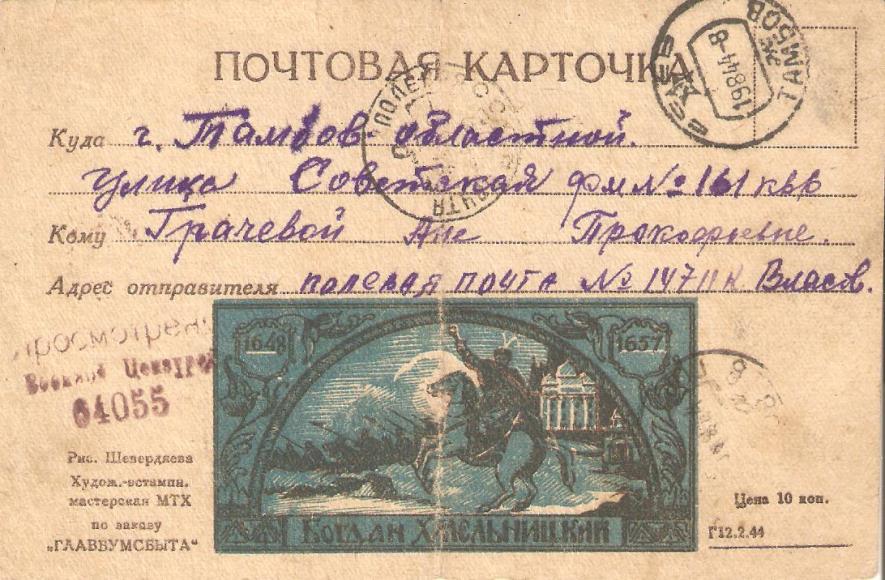 ПОЧТОВАЯ КАРТОЧКА
ТАМБОВ
19 8 44 - 8
Куда г. Тамбов областной.
улица Советская дом № 161 кв 6
Кому Грачевой Ане Прокофьевне.
Адрес отправителя полевая почта № 14711 К. Власов.
Просмотрено
Военной Цензурой
04055
1648
1657
Богдан Хмельницкий
Рис. Шевердяева
Худож.-эстампн.
мастерская МТХ
по заказу
„ГЛАВБУМСБЫТА“
Цена 10 коп.
Г12.2.44